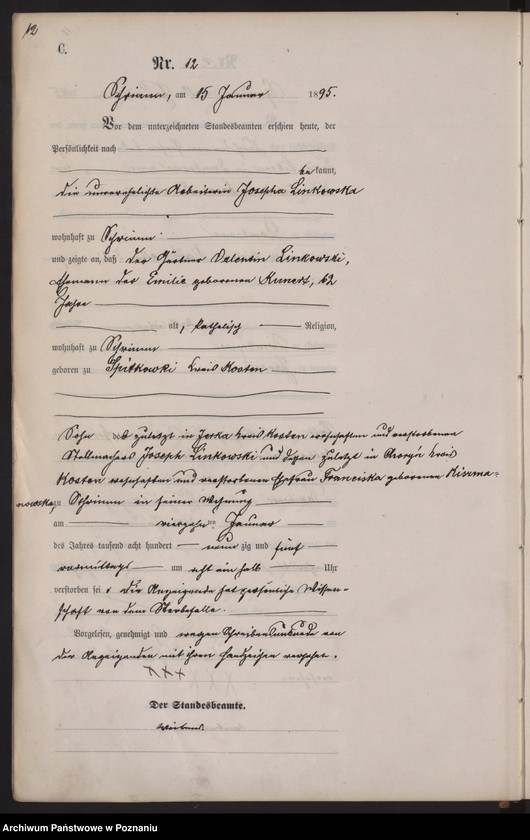 12
C.
Nr. 12
Schrimm, am 15 Januar 1895.
Vor dem unterzeichneten Standesbeamten erschien heute, der
Persönlichkeit nach
be kannt,
die unverehelichte Arbeiterin Josepha Linkowska
wohnhaft zu Schrimm
und zeigte an, daß der Gärtner Valentin Linkowski,
Ehemann der Emilie geborenen Kunert, 62
Jahre
alt, katholisch Religion,
wohnhaft zu Schrimm
geboren zu Spitkowki Kreis Kosten
Sohn des zuletzt in Jerka Kreis Kosten wohnhaften und verstorbenen
Stellmachers Joseph Linkowski und dessen zuletzt in Kreis
Kosten wohnhaften und verstorbenen Ehefrau Franciska geborenen
zu Schrimm in seiner Wohnung
am vierzehn ten Januar
des Jahres tausend acht hundert neun zig und fünf
vormittags um acht ein halb Uhr
verstorben sei, Die Anzeigende hat persönliche Wissen-
schaft von dem Sterbefalle.
Vorgelesen, genehmigt und wegen Schreibensunkunde von
der Anzeigenden mit ihren Handzeichen versehen.
XXX
Der Standesbeamte.
Archiwum Państwowe w Poznaniu